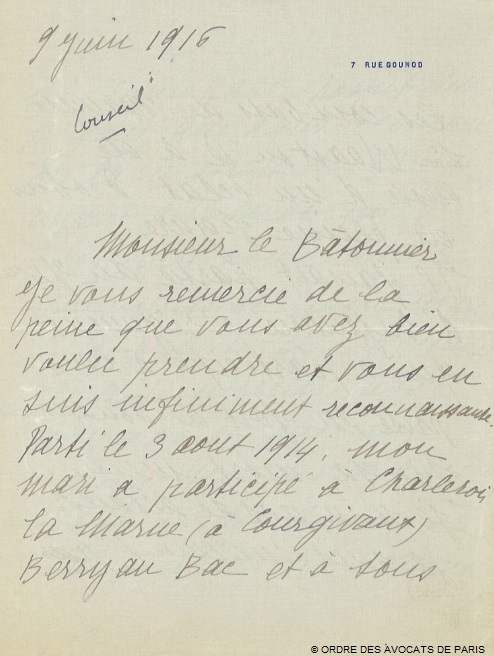 9 juin 1916
7 RUE GOUNOD
Conseil
Monsieur le Bâtonnier
Je vous remercie de la
peine que vous avez bien
voulu prendre et vous en
suis infiniment reconnaissante.
Parti le 3 aout 1914, mon
mari a participé à Charleroi,
la Marne (à Courgivaux)
Berry au Bac et à tous
© ORDRE DES AVOCATS DE PARIS